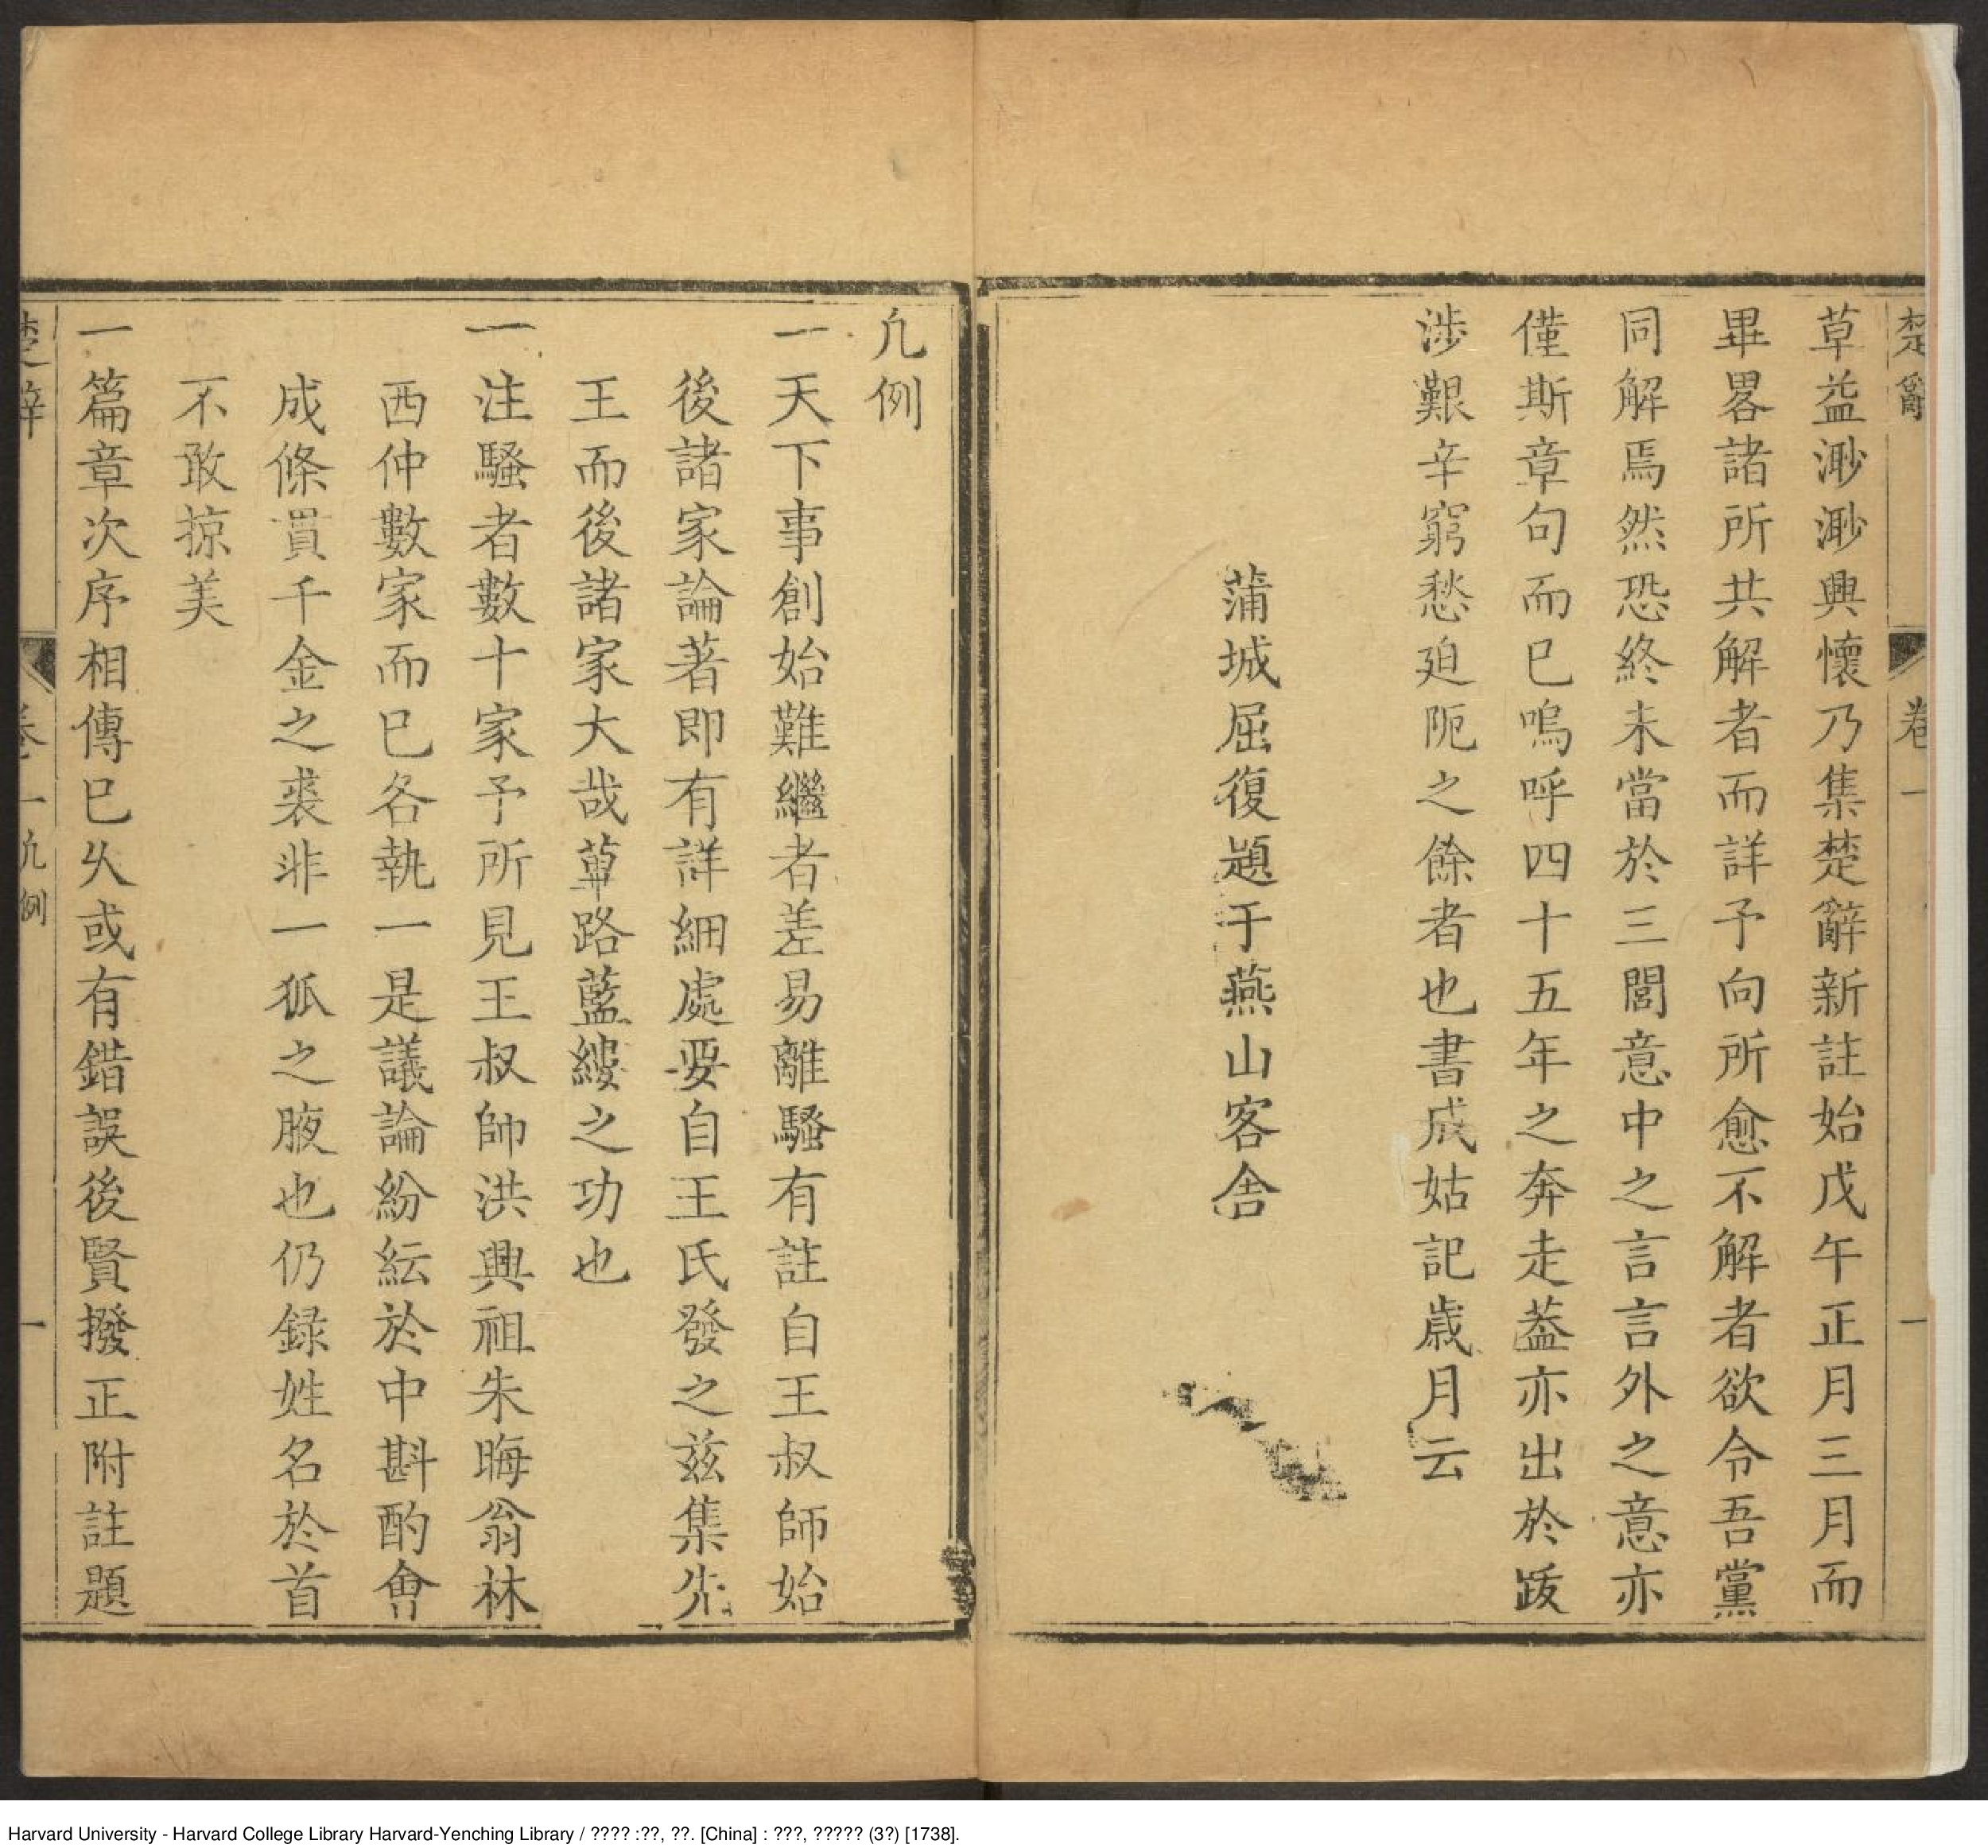 楚辭 卷一 一
草益渺渺興懷乃集楚辭新註始戊午正月三月而
畢畧諸所共解者而詳予向所愈不解者欲令吾黨
同解焉然恐終未當於三閭意中之言言外之意亦
僅斯章句而已嗚呼四十五年之奔走葢亦出於跋
涉艱辛窮愁廹阨之餘者也書成姑記歲月云
蒲城屈復題于燕山客舍
凢例
一天下事創始難繼者差易離騷有註自王叔師始
後諸家論著即有詳細處要自王氏發之兹集先
王而後諸家大哉蓽路藍縷之功也
一注騷者數十家予所見王叔師洪興祖朱晦翁林
西仲數家而已各執一是議論紛紜於中斟酌會
成條貫千金之裘非一狐之腋也仍録姓名於首
不敢掠美
一篇章次序相傳已久或有錯誤後賢撥正附註題
楚辭 卷一凢例 一
Harvard University - Harvard College Library Harvard-Yenching Library / ???? :??, ??. [China] : ???, ????? (3?) [1738].